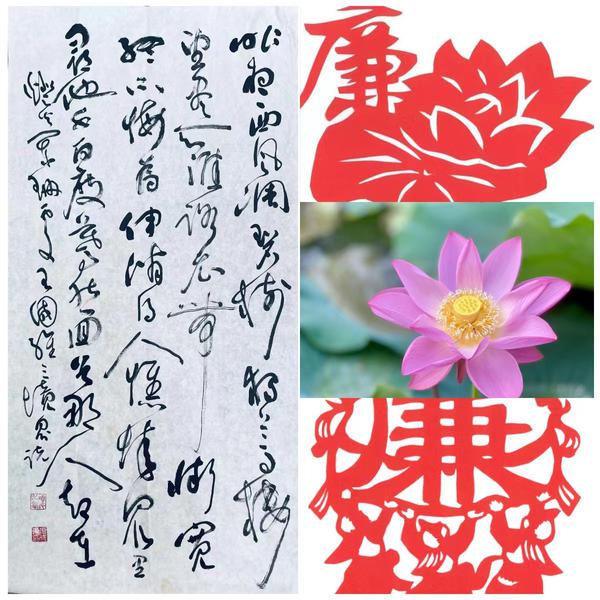 昨夜西风凋碧树独上高楼
望尽天涯路衣带渐宽
终不悔为伊消得人憔悴众里
寻他千百度蓦然回首那人却在
灯火阑珊处王国维三境界说
廉
廉